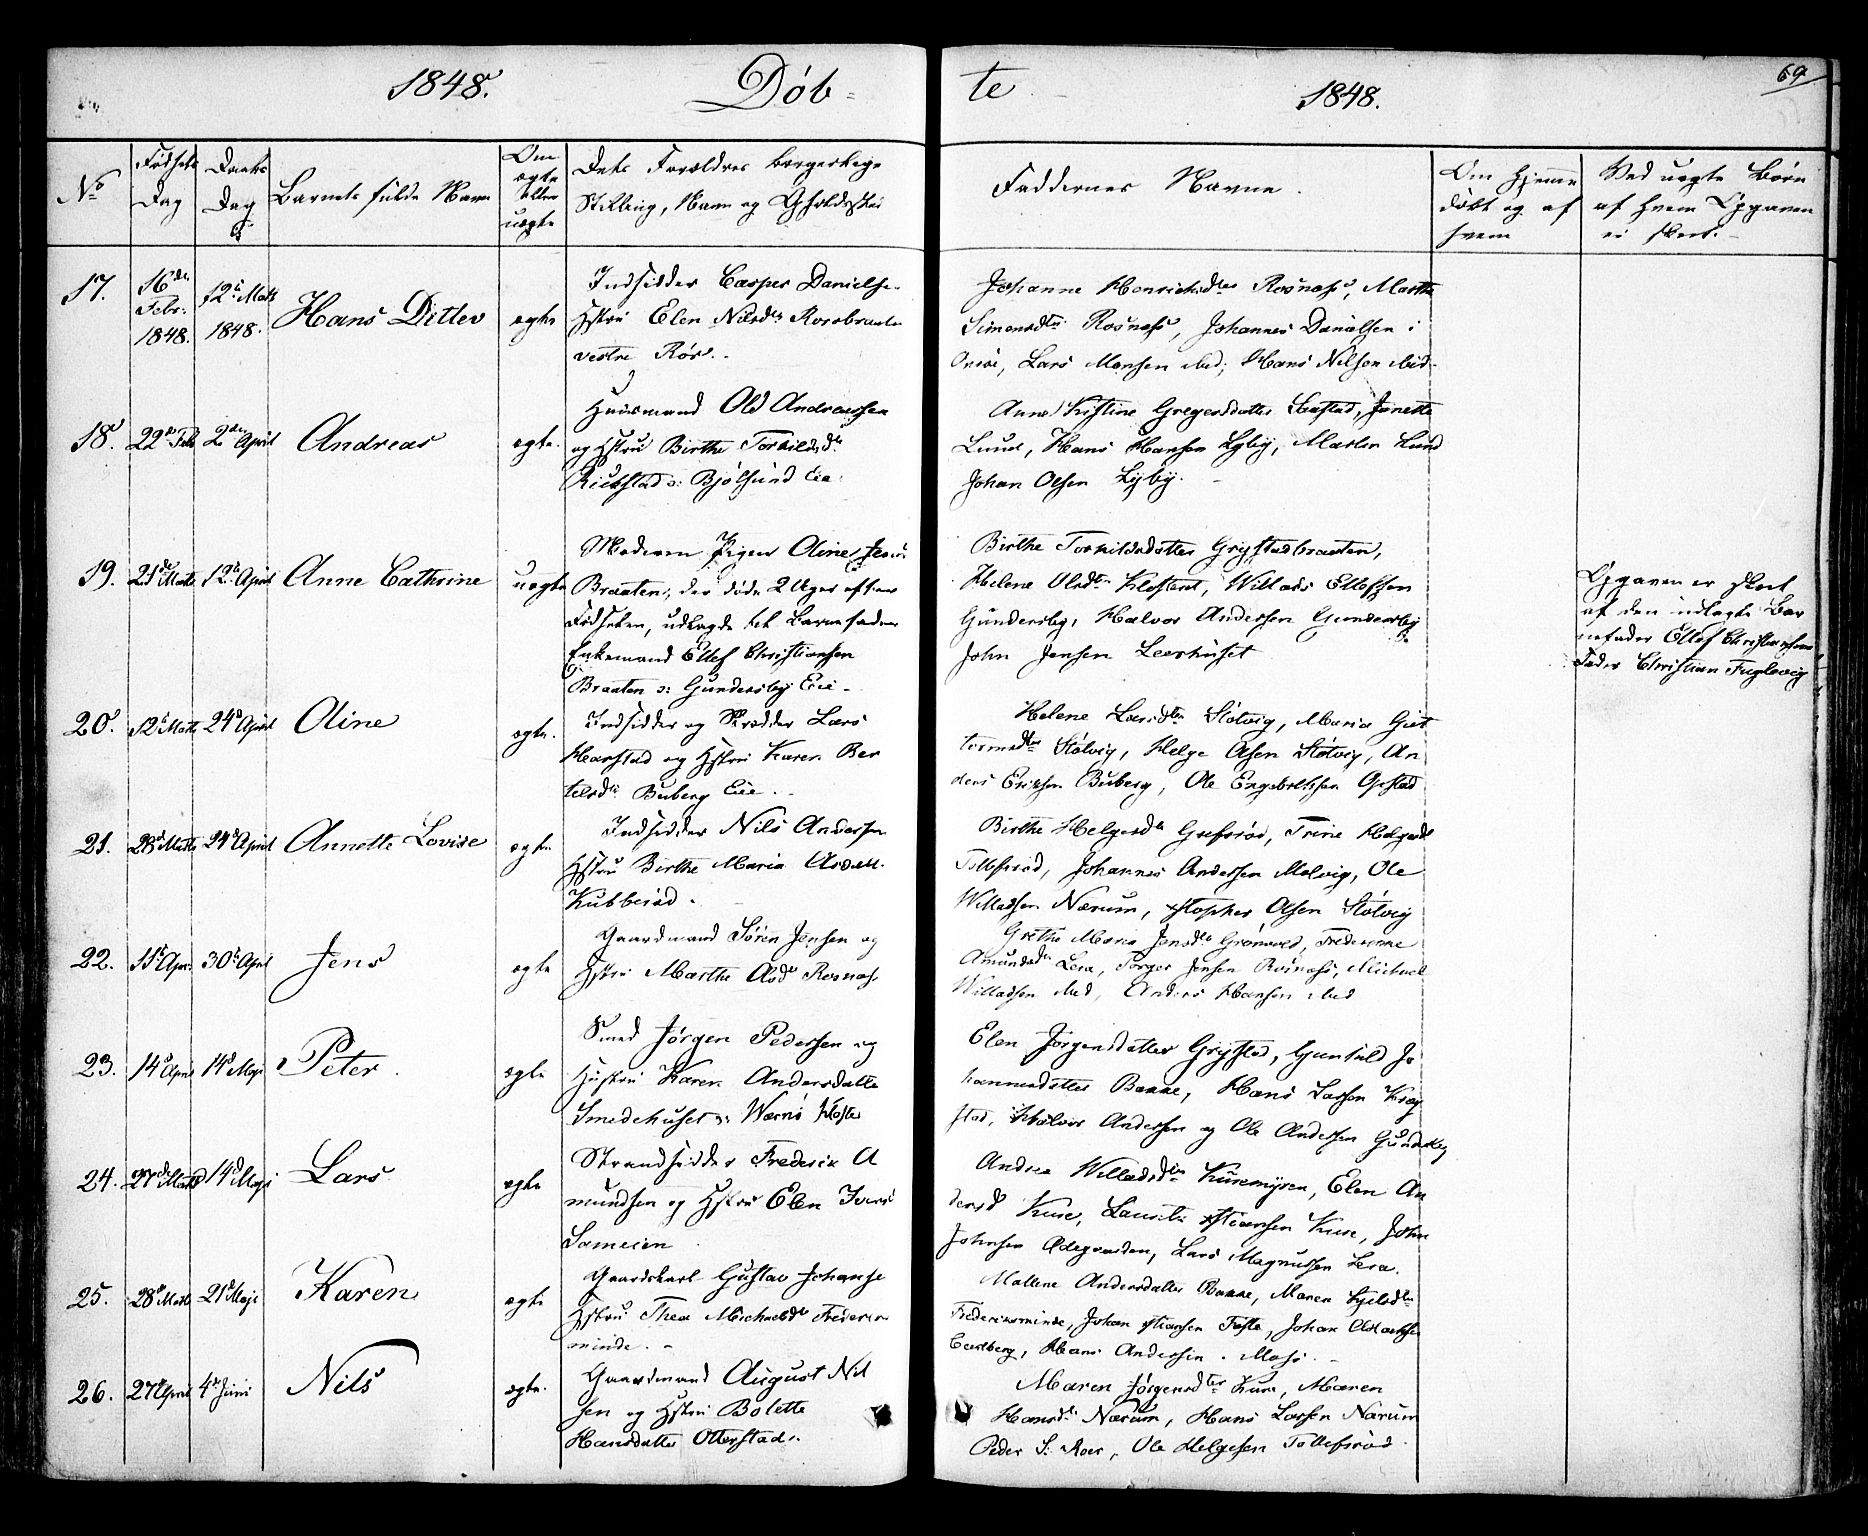 1848. Døb-
te 1848. 69
No
Fødsels
Dag
Daabs
Dag
Barnets fulde Navn
Om
ægte
eller
uægte
Dets Forældres borgerlige
Stilling, Navn og Opholdssted
Faddernes Navne.
Om hjemme
døbt og af
hvem
Ved uægte Børn
af hvem Opgaven
er skeet.
17.
16de
Febr:
1848.
12te Marts
1848.
Hans Ditlev
ægte
Indsidder Casper Danielsen
Hstru Elen Nilsdtr Rosnbraaten
vestre Rør.
Johanne Henrichsdtr Rosnæs, Marthe
Simensdtr Rosnæs, Johannes Danielsen i
Lars Monsen ibid; Hans Nilsen ibid.
18.
22de Feb
2den April
Andreas
ægte.
Huusmand Ole Andreassen
og Hstru Birthe Torkildsdtr
Rickstad o: Bjølsund Eie.
Anne Kistine Gregersdatter Saastad, Jenette
Lund, Hans Hansen Lyby, Martin Lund
Johan Olsen Lyby.
19.
21de Marts
12te April
Anne Cathrine
uægte
Moderen Pigen Oline
Braaten, der døde 2 Uger efter
Fødselen, udlagde til Barnefader
Enkemand Ellef Christiansen
Braaten o: Gundersby Eie.
Birthe Torkildsdatter Grystadbraaten,
Helene Olsdtr Klosteret, Willads Ellefsen
Gundersby, Halvor Andersen Gundersby
John Jensen Leerhuset
Opgaven er skeet
af den udlagte Bar
nefader Ellef Christiansens
Fader Christian Fuglevig
20.
12te Marts
24de April
Oline
ægte.
Indsidder og Skrædder Lars
Harstad og Hstru Karen Ber
telsdtr Buberg Eie.
Helene Larsdtr Støtvig, Maria Gut
tormsdtr Støtvig, Helge Olsen Støtvig, An
ders Eriksen Buberg, Ole Engebretsen Opstad
21.
28de Marts
24de April
Annette Lovise
ægte
Indsidder Nils Andersen
Hstru Birthe Maria Arvesdtr
Kubberød.
Birthe Helgesdtr Grefsrød, Trine Helgesdtr
Tollefsrød, Johannes Andersen Melvig, Ole
Willadsen Nærum, Xstopher Olsen Støtvig
22.
11te April
30te April
Jens
ægte
Gaardmand Søren Jensen og
Hstru Marthe Olsdtr Rosnæs.
Grethe Maria Jensdtr Grønvold, Frederikke
Amundsdtr Lera, Torger Jensen Rosnæs, Michael
Willadsen ibid, Anders Hansen ibid
23.
14de April
14de Maji
Peter.
ægte
Smed Jørgen Pedersen og
Hustru Karen Andersdatter
Smedehuset o: Wærnø Kloster
Elen Jørgensdatter Grystad, Gunhild Jo
hannesdatter Bakke, Hans Larsen Kræg
stad, Halvor Andersen og Ole Andersen Gundersby
24.
27de Marts
14de Maji
Lars
ægte
Strandsidder Frederik A
mundsen og Hstru Elen Ivers
Sameien
Andrea Willadsdtr Kuremyren, Elen An
dersd Kure, Laurits Xstiansen Kure, John
Johnsen Ødegaarden, Lars Magnussen Lera.
25.
28de Marts
21de Maji
Karen
ægte
Gaardskarl Gustav Johanse
Hstru Thea Michaelsdtr Frederiks
minde.
Mallene Andersdatter Bakke, Maren Kjelsdtr
Frederiksminde, Johan Xstiansen Foste, Johan
Carlberg, Hans Andersen. Moss.
26.
27de April
4de Juni
Nils
ægte.
Gaardmand August Nil
sen og Hstru Bolette
Hansdatter Otterstad.
Maren Jørgensdtr Kure, Maren
Hansdtr Nærum, Hans Larsen Nærum
Peder S. Roer, Ole Helgesen Tollefsrød.